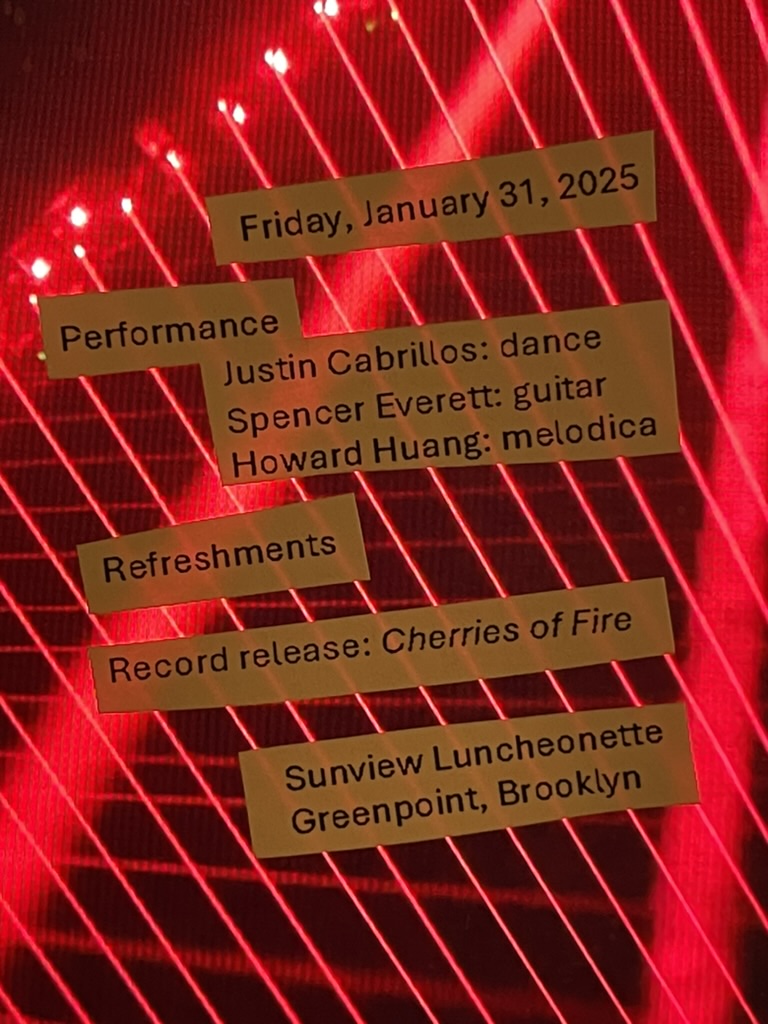 Friday, January 31, 2025
Performance
Justin Cabrillos: dance
Spencer Everett: guitar
Howard Huang: melodica
Refreshments
Record release: Cherries of Fire
Sunview Luncheonette
Greenpoint, Brooklyn